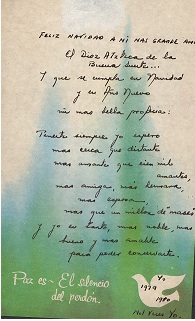 FELIZ NAVIDAD A MI MAS GRANDE AMOR
El Dios Azteca de la
Buena Suerte...
Y que se cumpla en Navidad
y en Año Nuevo
mi mas bella profecia:
Tenerte siempre yo espero
mas cerca que distante
mas amante que cien mil
amantes,
mas amiga, más hermana,
mas esposa...
mas que un millon de
y yo en tanto, mas noble, mas
bueno y mas amable
para poder
Paz es - El silencio
del perdón.
Yo
1979
1980
Mil Veces Yo.